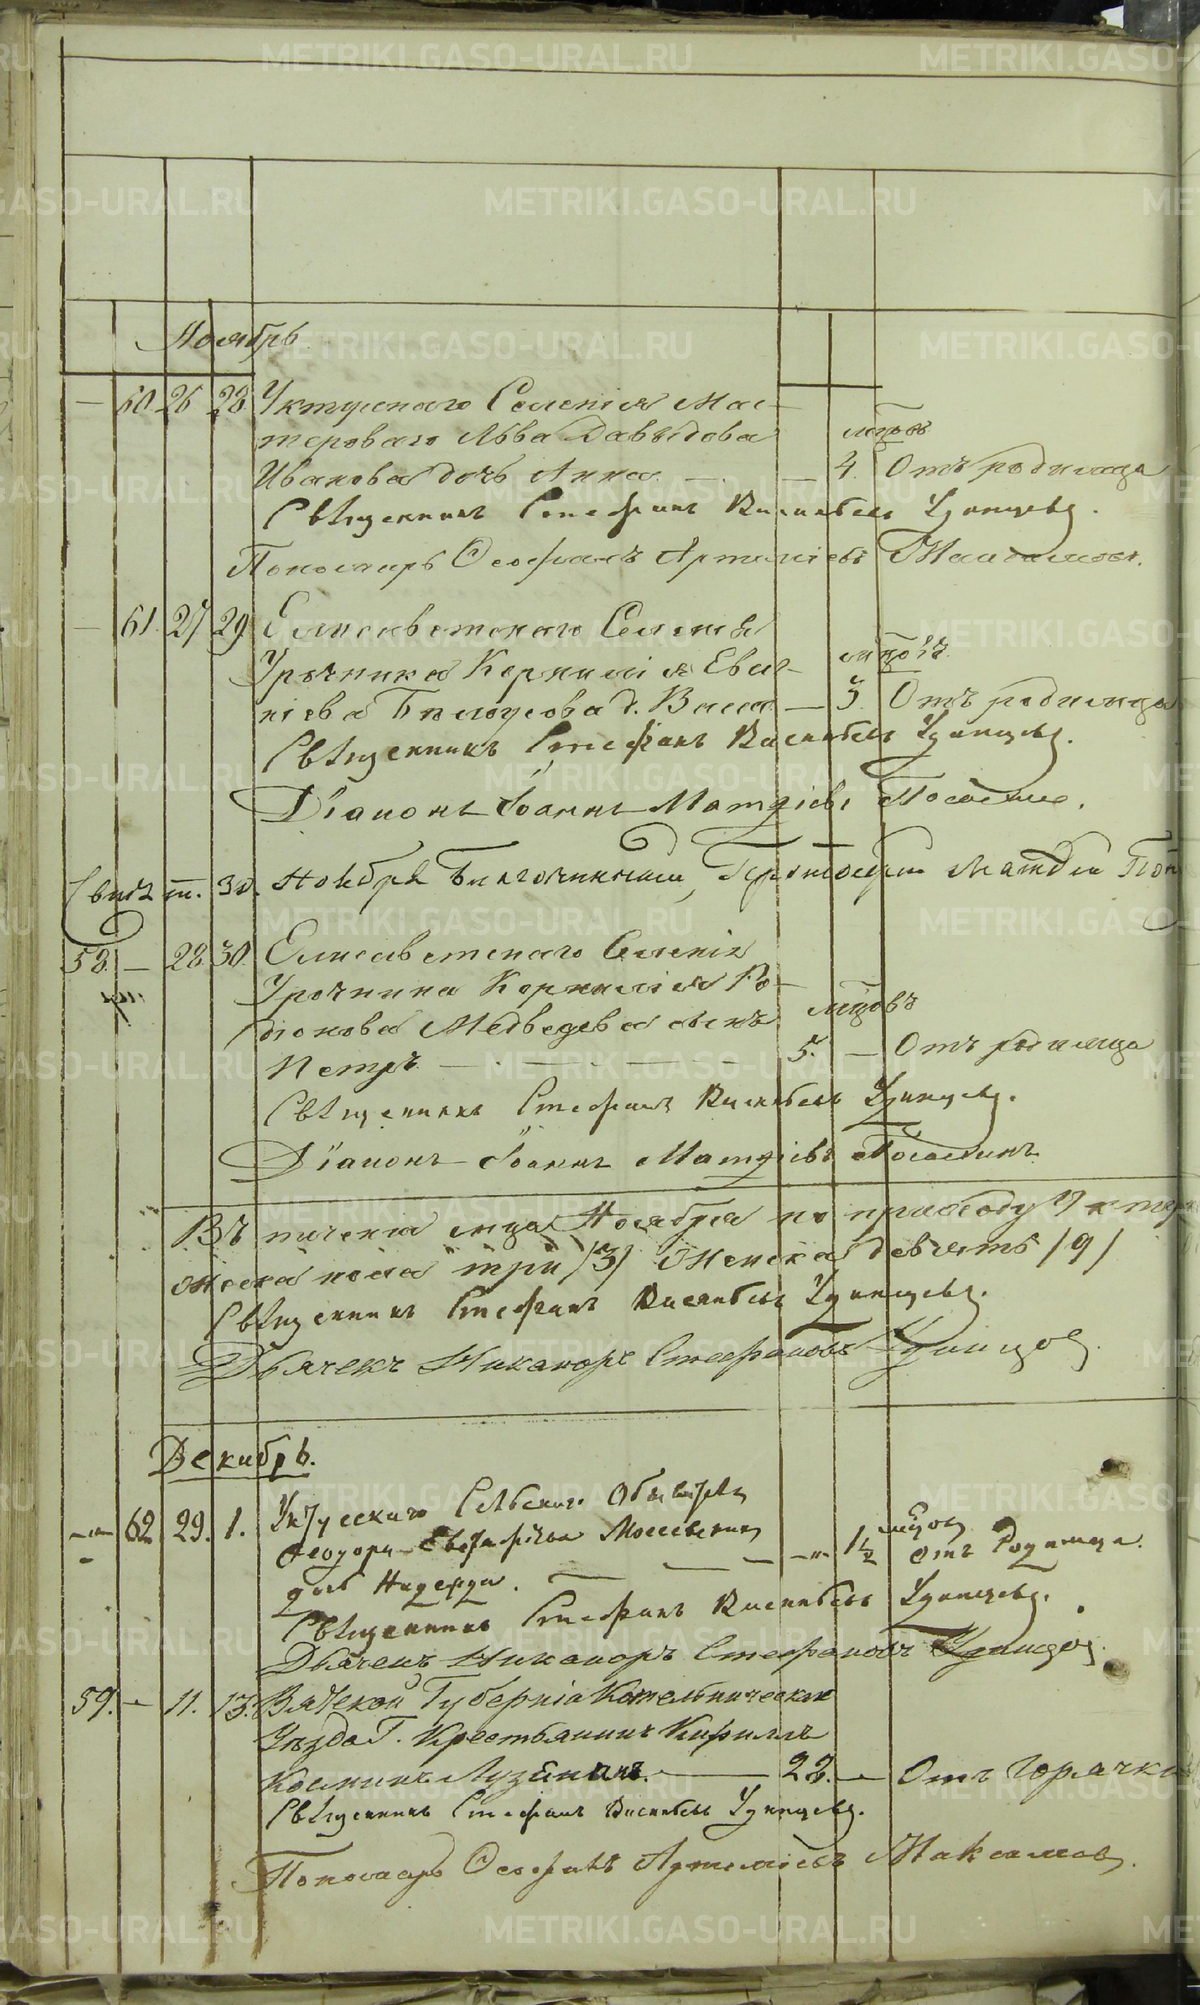 Ноябрь
— 60 26 28 Уктускаго Селенія Мас-
терового Льва Давыдова мцовъ
Иванова дочь Анна — — 4. Отъ родимца
Священникъ Стефанъ Васильевъ Удинцевъ.
Пономарь Ѳеофанъ Артеміевъ
— 61. 27 29 Елисаветскаго Селенія
Урочника Корнилія Евси- мцовъ
ніева Бѣлоусова д. Васса — 3. Отъ родимца
Священникъ Стефанъ Васильевъ Удинцевъ.
Діаконъ Іоаннъ Матѳіевъ
Свидѣт. 30. Ноября Благочинный Протоіерей Матѳій Поп
58. — 28 30. Елисаветскаго Селенія
Урочника Корнилія Ро-
діонова Медведева сынъ мцовъ
Петръ — — — 5. — Отъ родимца
Священникъ Стефанъ Васильевъ Удинцевъ.
Діаконъ Іоаннъ Матѳіевъ
Въ теченіи мца Ноября по приходу Укту
Мужска пола три /3/ Женска девять /9/
Священникъ Стефанъ Васильевъ Удинцевъ.
Дьячекъ Никаноръ Стефановъ Удинцов
Декабрь.
62 29. 1. Уктусскаго Сельскаго Обывателя
Ѳеодора мцов
дочь Надежда. — — 1½ отъ Родимца.
Священникъ Стефанъ Васильевъ Удинцевъ.
Дьячекъ Никаноръ Стефановъ Удинцов.
59. — 11. 13. Вятской Губерніи Котельническаго
Уѣзда Г. Крестьянинъ Кириллъ
Косминъ Лузянинъ. — 22. — Отъ Горячки
Священникъ Стефанъ Васильевъ Удинцевъ.
Пономарь Ѳеофанъ Артеміевъ
METRIKI.GASO-URAL.RU